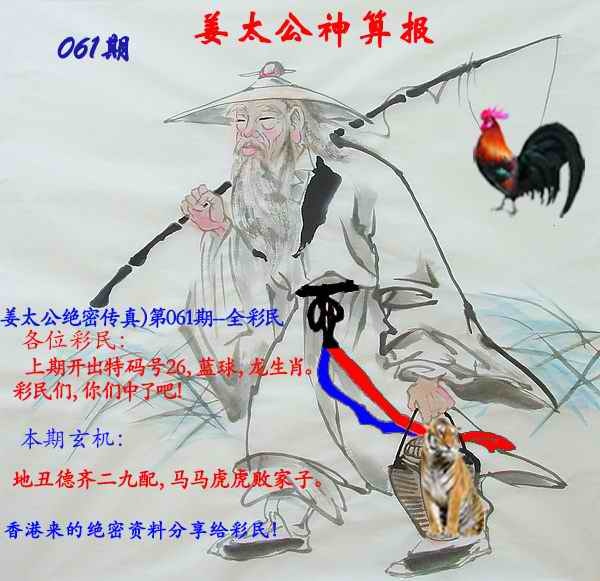 姜太公神算报
061期
姜太公绝密传真)第061期--全彩民
各位彩民:
上期开出特码号26,蓝球,龙生肖。
彩民们,你们中了吧!
本期玄机:
地丑德齐二九配,马马虎虎败家子。
香港来的绝密资料分享给彩民!